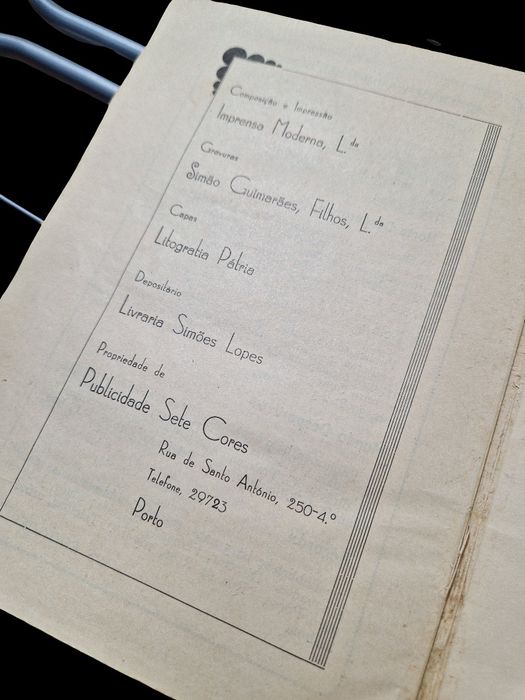 Composição e Impressão
Imprensa Moderna, L.da
Gravuras
Simão Guimarães, Filhos, L.da
Capas
Litografia Pátria
Depositário
Livraria Simões Lopes
Propriedade de
Publicidade Sete Cores
Rua de Santo António, 250-4.º
Telefone, 29723
Porto